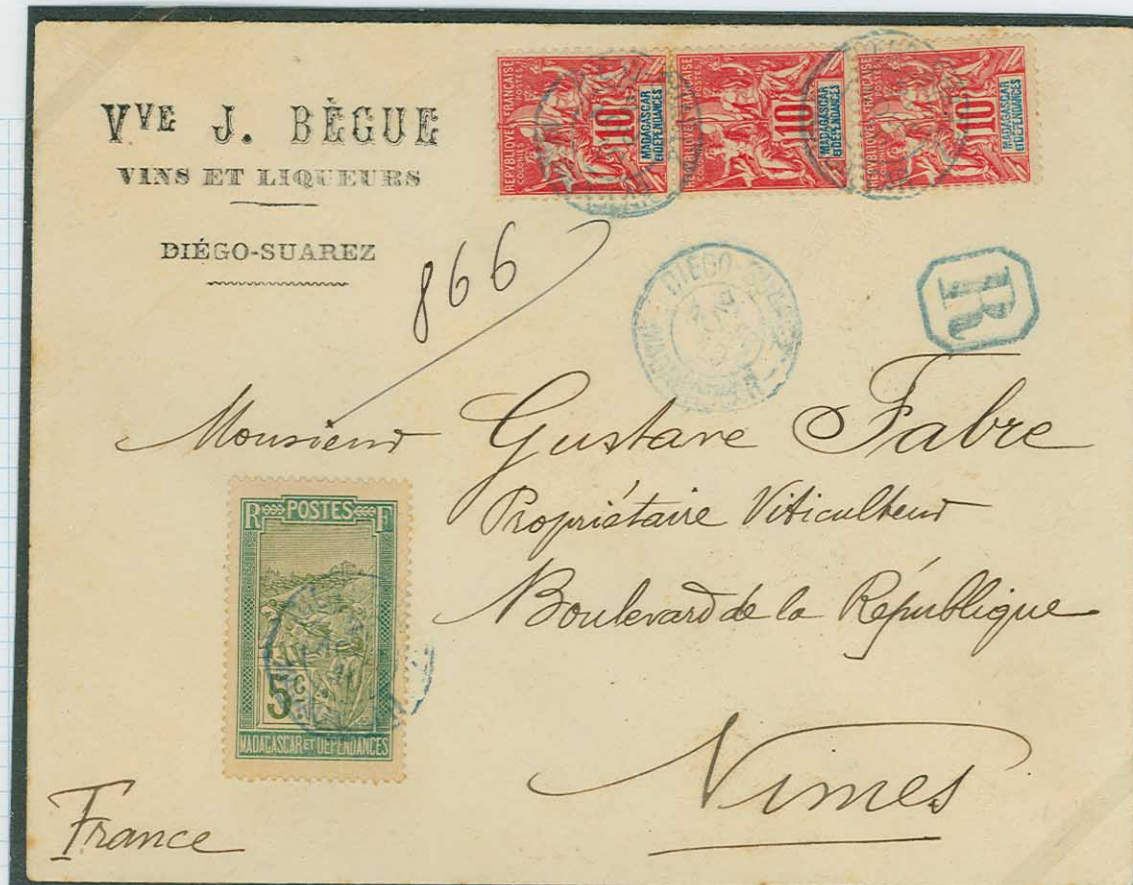 VVE J. BÈGUE
VINS ET LIQUEURS
DIÉGO-SUAREZ
RÉPUBLIQUE FRANÇAISE
COLONIES POSTES
10
MADAGASCAR
ET DÉPENDANCES
RÉPUBLIQUE FRANÇAISE
COLONIES POSTES
10
MADAGASCAR
ET DÉPENDANCES
RÉPUBLIQUE FRANÇAISE
COLONIES POSTES
10
MADAGASCAR
ET DÉPENDANCES
866
DIÉGO-SUAREZ
R
Monsieur Gustave Fabre
Propriétaire Viticulteur
Boulevard de la République
Nimes
France
R POSTES F
5 C
MADAGASCAR ET DÉPENDANCES